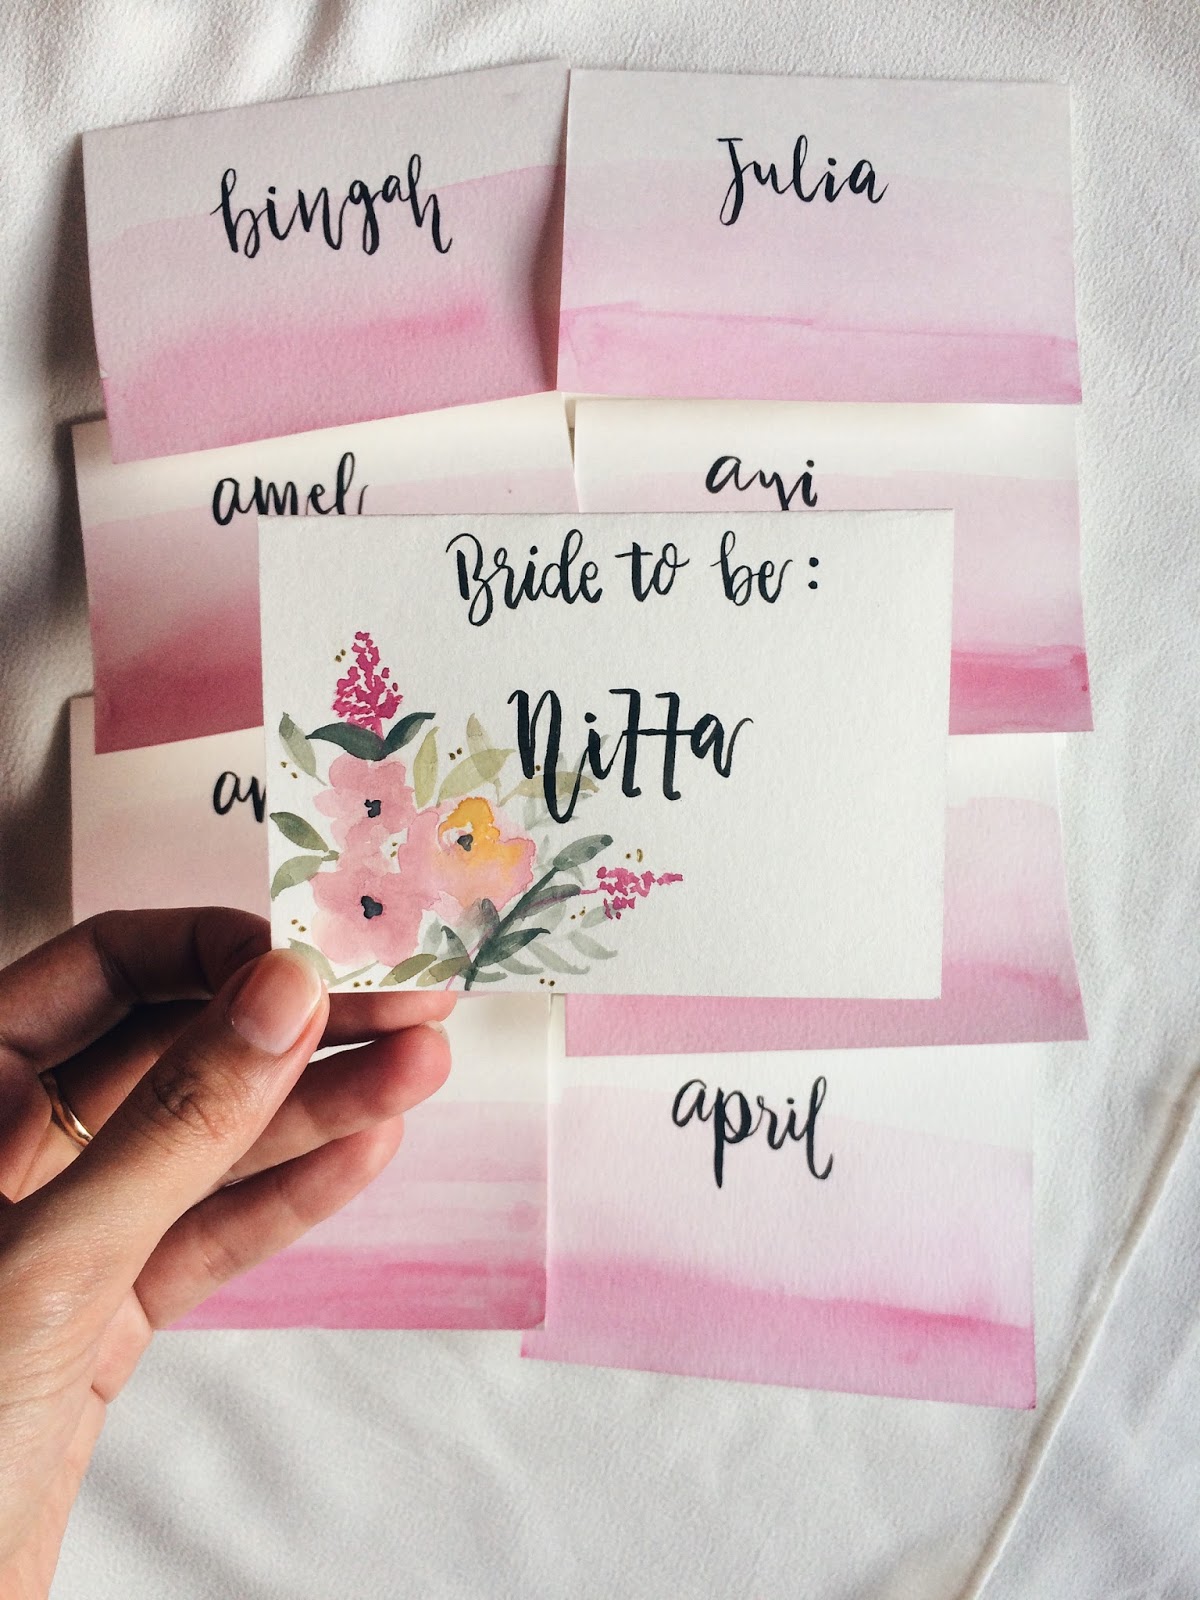 bingah
Julia
amel
ayi
Bride to be:
Nitta
april